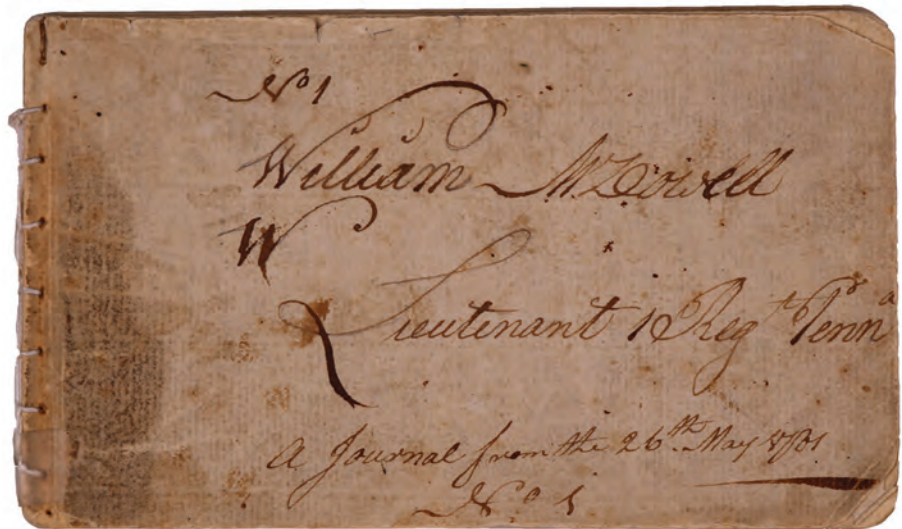 No 1
William McDowell
W
Lieutenant 1 Regt Penna
A Journal from the 26th May 1781
No 1